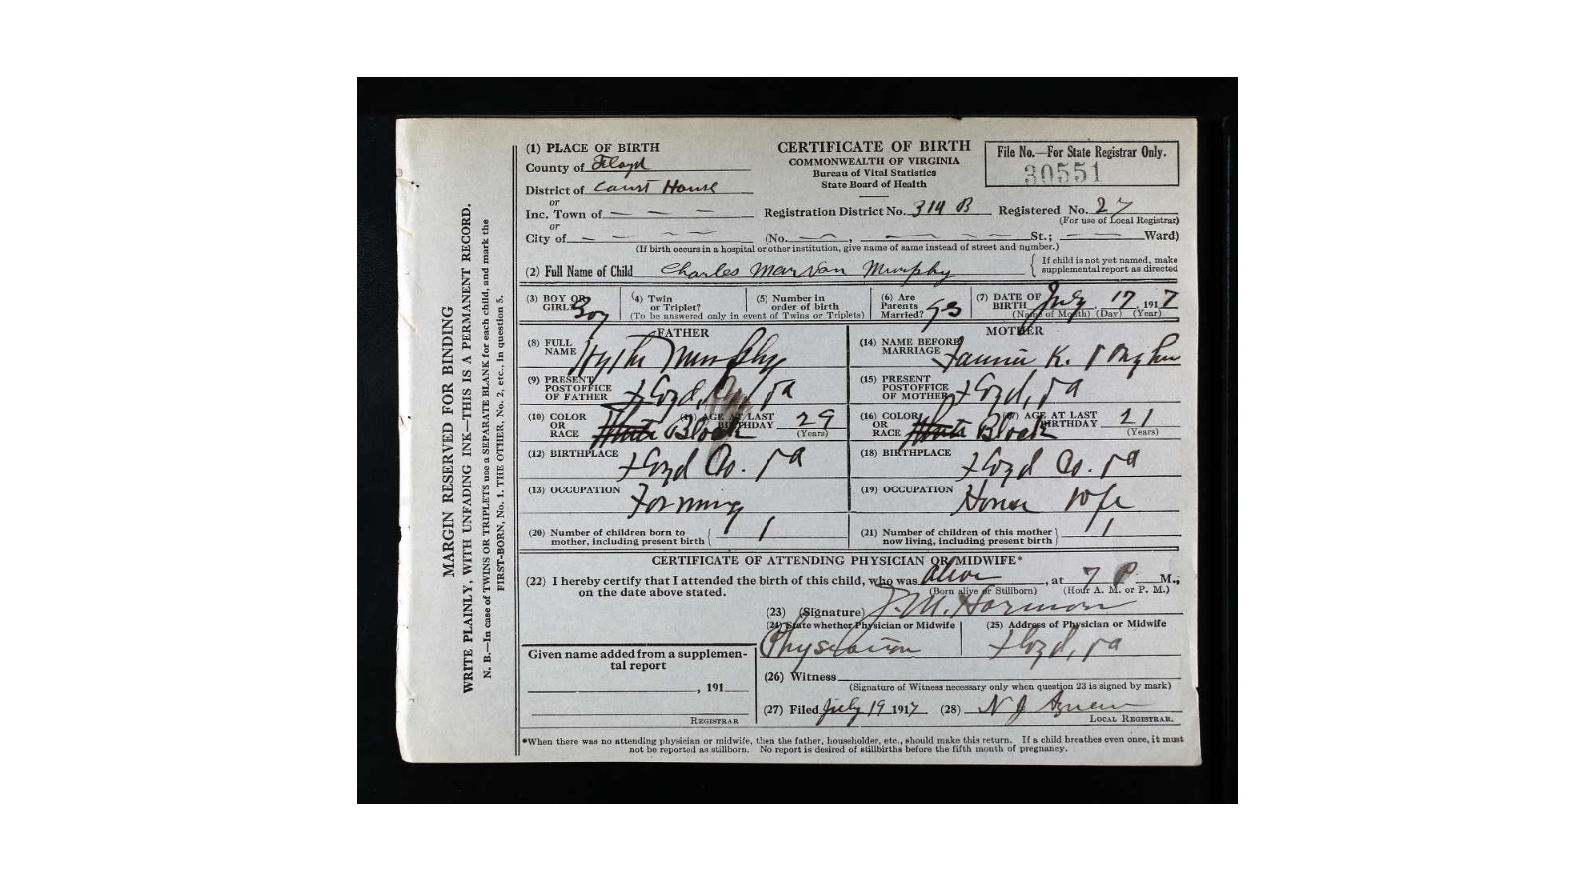 (1) PLACE OF BIRTH
County of Floyd
District of Court House
or
Inc. Town of — — —
or
City of — — — —
CERTIFICATE OF BIRTH
COMMONWEALTH OF VIRGINIA
Bureau of Vital Statistics
State Board of Health
File No.—For State Registrar Only.
30551
Registration District No. 314 B Registered No. 27
(For use of Local Registrar)
(No. — , — — — — St.; — — — Ward)
(If birth occurs in a hospital or other institution, give name of same instead of street and number.)
(2) Full Name of Child Charles Marvan Murphy
{ If child is not yet named, make
supplemental report as directed
(3) BOY OR
GIRL? Boy
(4) Twin
or Triplet?
(5) Number in
order of birth
(To be answered only in event of Twins or Triplets)
(6) Are
Parents
Married? yes
(7) DATE OF
BIRTH July 17, 1917
(Name of Month) (Day) (Year)
FATHER
(8) FULL
NAME Murphy
(9) PRESENT
POSTOFFICE
OF FATHER Floyd, Va
(10) COLOR
OR
RACE White Black
(11) AGE AT LAST
BIRTHDAY 29
(Years)
(12) BIRTHPLACE Floyd Co. Va
(13) OCCUPATION Farming
(20) Number of children born to
mother, including present birth { 1
MOTHER
(14) NAME BEFORE
MARRIAGE Fannie K.
(15) PRESENT
POSTOFFICE
OF MOTHER Floyd, Va
(16) COLOR
OR
RACE White Black
(17) AGE AT LAST
BIRTHDAY 21
(Years)
(18) BIRTHPLACE Floyd Co. Va
(19) OCCUPATION House Wife
(21) Number of children of this mother
now living, including present birth } 1
CERTIFICATE OF ATTENDING PHYSICIAN OR MIDWIFE*
(22) I hereby certify that I attended the birth of this child, who was alive, at 7 P M.,
(Born alive or Stillborn) (Hour A. M. or P. M.)
on the date above stated.
(23) (Signature) J. M. Harman
(24) State whether Physician or Midwife
Physician
(25) Address of Physician or Midwife
Floyd, Va
Given name added from a supplemen-
tal report
, 191
REGISTRAR
(26) Witness
(Signature of Witness necessary only when question 23 is signed by mark)
(27) Filed July 19 1917 (28) N J Agnew
LOCAL REGISTRAR.
*When there was no attending physician or midwife, then the father, householder, etc., should make this return. If a child breathes even once, it must
not be reported as stillborn. No report is desired of stillbirths before the fifth month of pregnancy.
MARGIN RESERVED FOR BINDING
WRITE PLAINLY, WITH UNFADING INK—THIS IS A PERMANENT RECORD.
N. B.—In case of TWINS OR TRIPLETS use a SEPARATE BLANK for each child, and mark the
FIRST-BORN, No. 1. THE OTHER, No. 2, etc., in question 5.